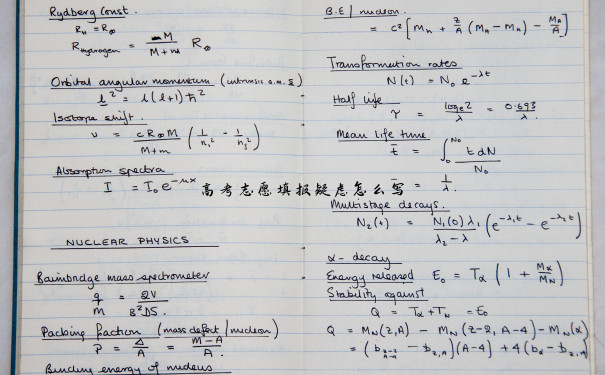 Rydberg Const.
R_H = R_∞
R_Hydrogen = M / (M + m) R_∞
Orbital angular momentum (intrinsic a.m. s)
l² = l(l+1)ħ²
Isotope shift.
ν = cR_∞M / (M+m) (1/n₁² - 1/n₂²)
Absorption spectra
I = I₀e^(-μx)
高考志愿填报疑虑怎么写
NUCLEAR PHYSICS
Bainbridge mass spectrometer
q/m = 2V / B²DS.
Packing fraction (mass defect / nucleon)
P = Δ/A = (M-A)/A.
Binding energy of nucleus
B.E / nucleon.
= c² [M_n + Z/A (M_H - M_n) - M_A/A]
Transformation rates
N(t) = N₀ e^(-λt)
Half life
τ = log_e 2 / λ = 0.693 / λ.
Mean life time
t̄ = ∫₀^N₀ t dN / N₀
= 1/λ.
Multistage decays.
N₂(t) = N₁(0)λ₁ / (λ₂-λ) (e^(-λ₁t) - e^(-λ₂t))
α - decay
Energy released E₀ = T_α (1 + M_α/M_N)
Stability against
Q = T_α + T_N = E₀
Q = M_N(Z,A) - M_N(Z-2, A-4) - M_N(α)
= (b_{Z-2,A-4} - b_{Z,A})(A-4) + 4(b_α - b_{Z,A})